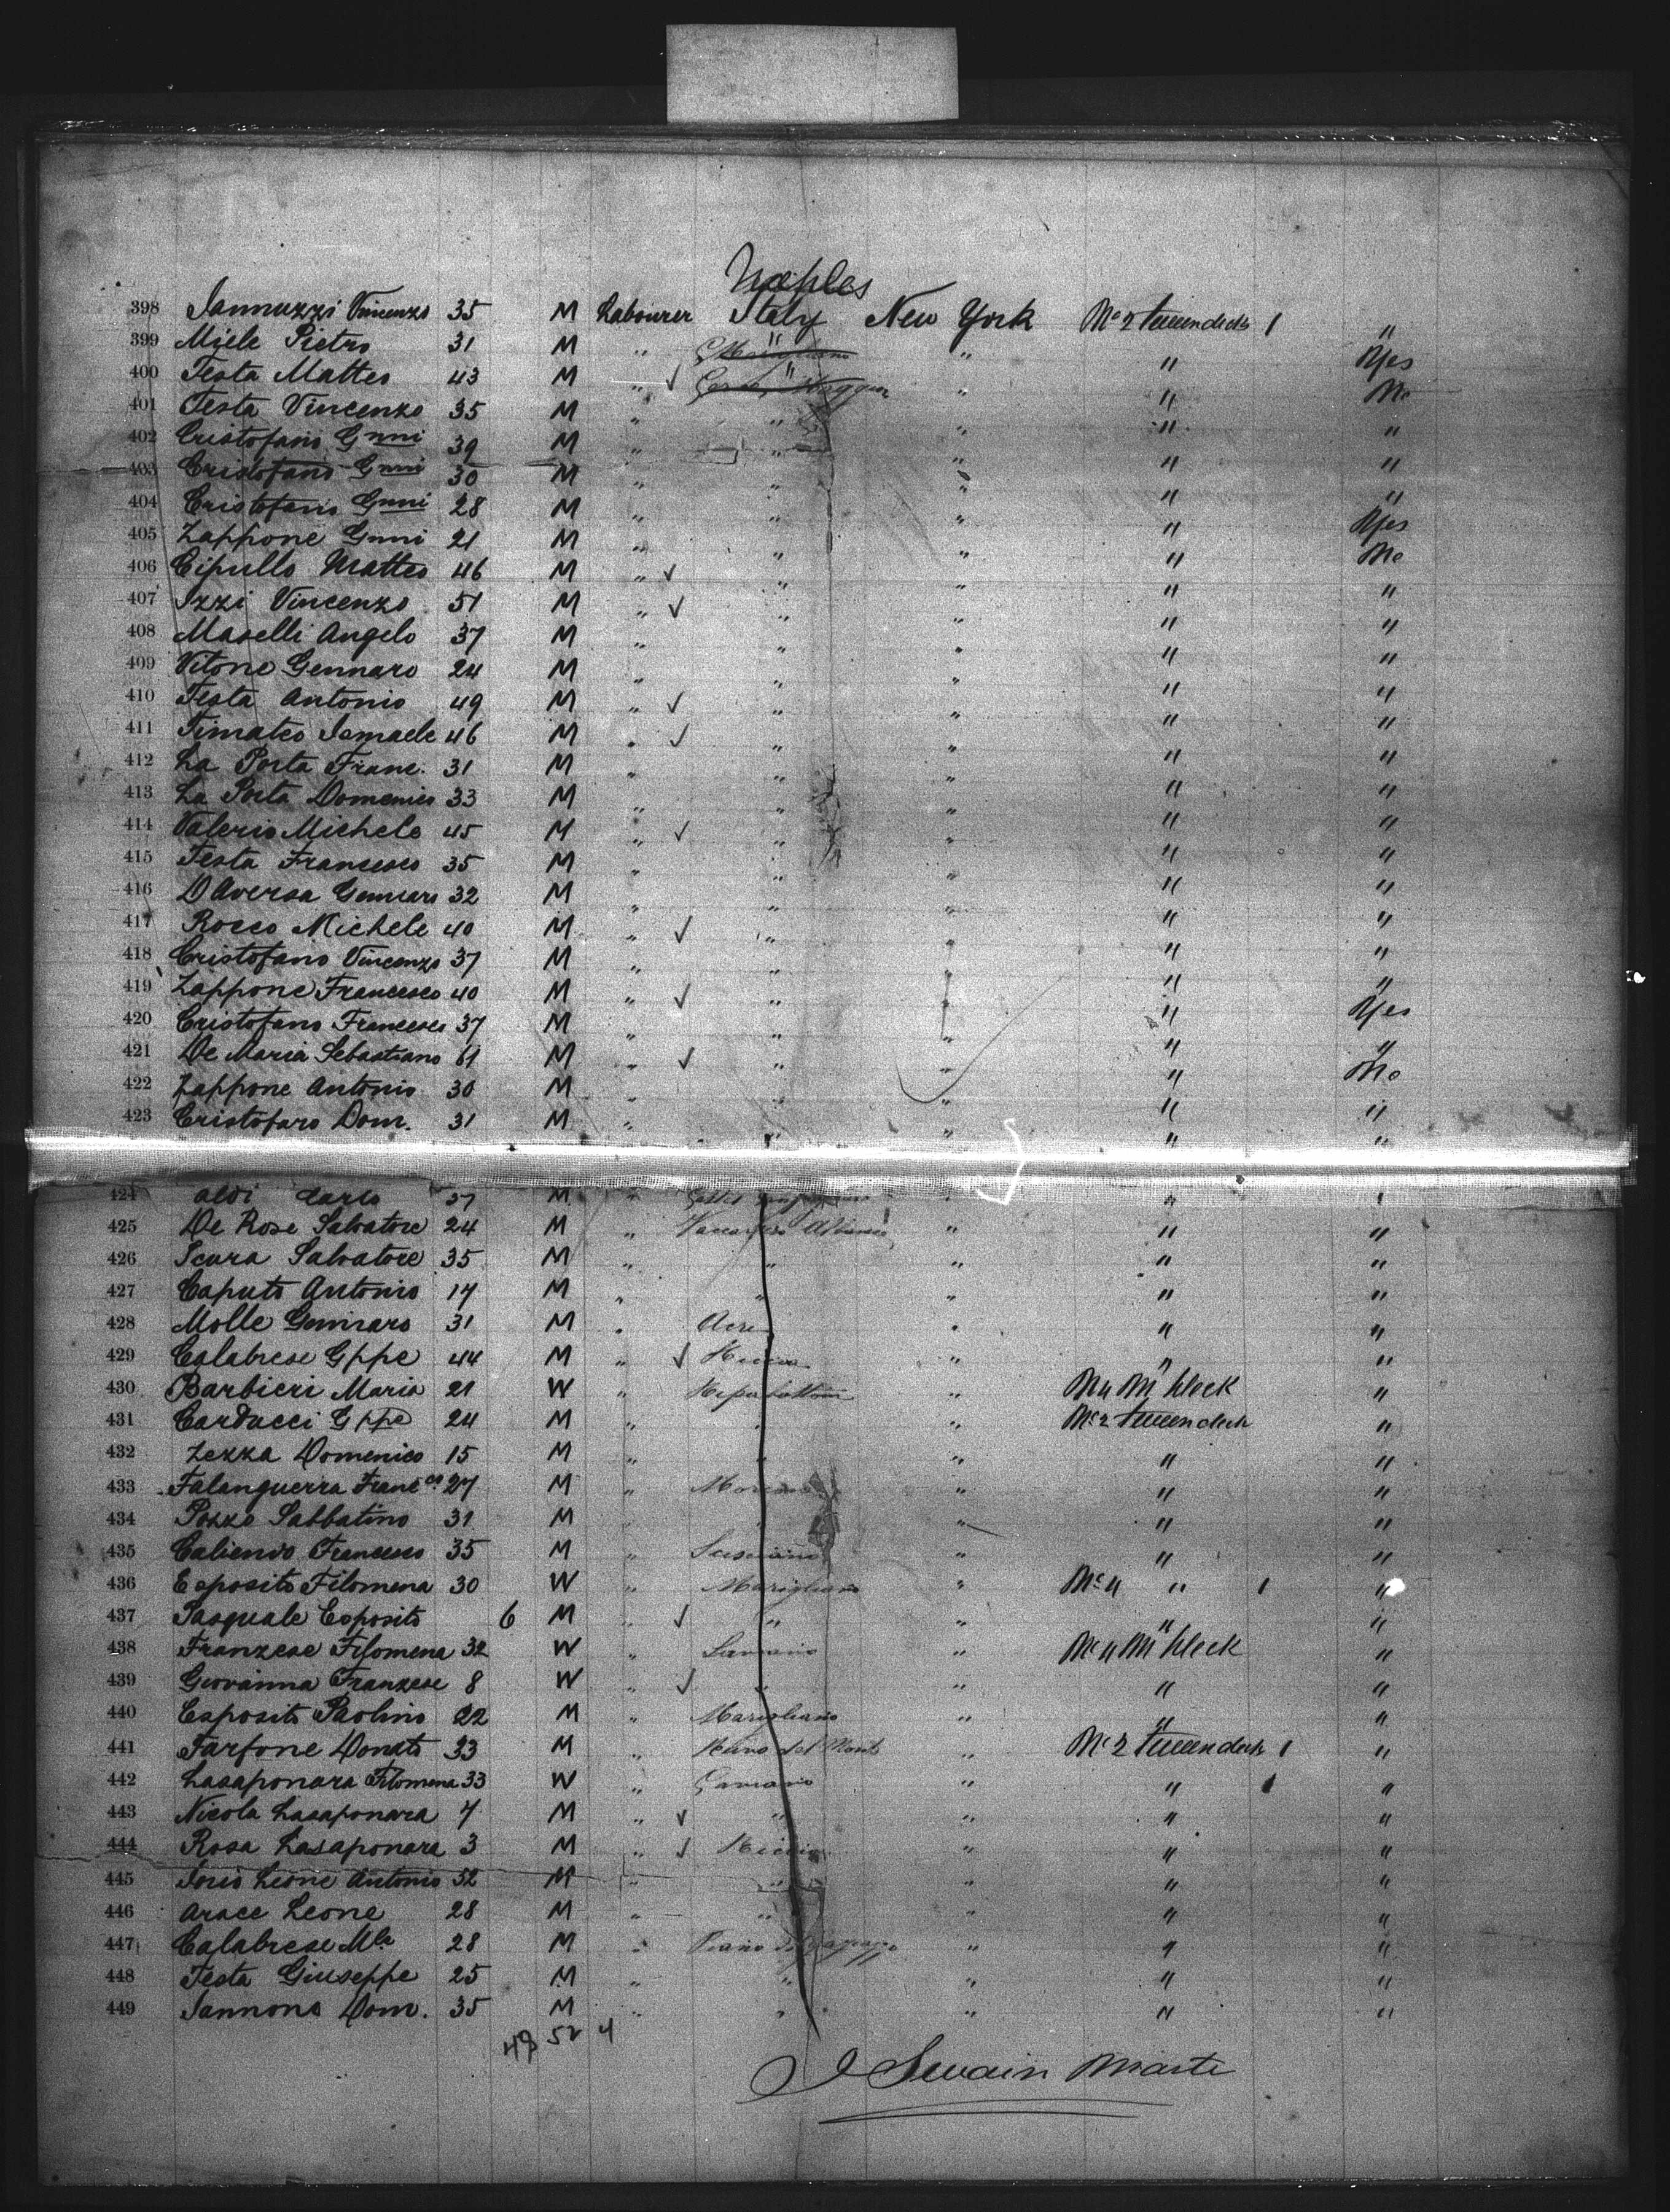 Naples
398 Jannuzzi Vincenzo 35 M Labourer Italy New York No 2 tweendeck 1 "
399 Miele Pietro 31 M " " " " Yes
400 Testa Matteo 43 M " ✓ " " " No
401 Testa Vincenzo 35 M " " " " "
402 Cristofano Gnni 39 M " " " " "
403 Cristofano Gnni 30 M " " " " "
404 Cristofano Gnni 28 M " " " " Yes
405 Zappone Gnni 21 M " " " " No
406 Cipullo Matteo 46 M " ✓ " " " "
407 Izzi Vincenzo 51 M " ✓ " " " "
408 Maselli Angelo 37 M " " " " "
409 Vitone Gennaro 24 M " " " " "
410 Testa Antonio 49 M " ✓ " " " "
411 Timateo Ismaele 46 M " ✓ " " " "
412 La Porta Franc. 31 M " " " " "
413 La Porta Domenico 33 M " " " " "
414 Valerio Michele 45 M " ✓ " " " "
415 Testa Francesco 35 M " " " " "
416 D'Aversa Gennaro 32 M " " " " "
417 Rocco Michele 40 M " ✓ " " " "
418 Cristofano Vincenzo 37 M " " " " "
419 Zappone Francesco 40 M " ✓ " " " Yes
420 Cristofano Francesco 37 M " " " " "
421 De Maria Sebastiano 61 M " ✓ " " " No
422 Zappone Antonio 30 M " " " " "
423 Cristofaro Dom. 31 M " " " " "
424 Aldi Carlo M " " " "
425 De Rose Salvatore 24 M " " " "
426 Scura Salvatore 35 M " " " " "
427 Caputo Antonio 14 M " " " " "
428 Molle Gennaro 31 M " Acre " " "
429 Calabrese Gppe 44 M " ✓ " " "
430 Barbieri Maria 21 W " " "
431 Carducci Gppe 24 M " " " No 2 tweendeck "
432 Zezza Domenico 15 M " " " " "
433 Falanguerra Franc co 27 M " " " "
434 Pozzo Sabbatino 31 M " " " " "
435 Caliendo Francesco 35 M " " " "
436 Esposito Filomena 30 W " Marigliano " No 4 " 1 "
437 Pasquale Esposito 6 M " ✓ " " " "
438 Franzese Filomena 32 W " " "
439 Giovanna Franzese 8 W " ✓ " " " "
440 Esposito Paolino 22 M " Marigliano " " "
441 Farfone Donato 33 M " " No 2 tweendeck 1 "
442 Lasaponara Filomena 33 W " " " 1 "
443 Nicola Lasaponara 7 M " ✓ " " " "
444 Rosa Lasaponara 3 M " ✓ " " "
445 Iorio Leone Antonio 52 M " " " " "
446 Arace Leone 28 M " " " " "
447 Calabrese Mle 28 M " " " "
448 Testa Giuseppe 25 M " " " " "
449 Iannone Dom. 35 M " " " " "
49 52 4
Swain